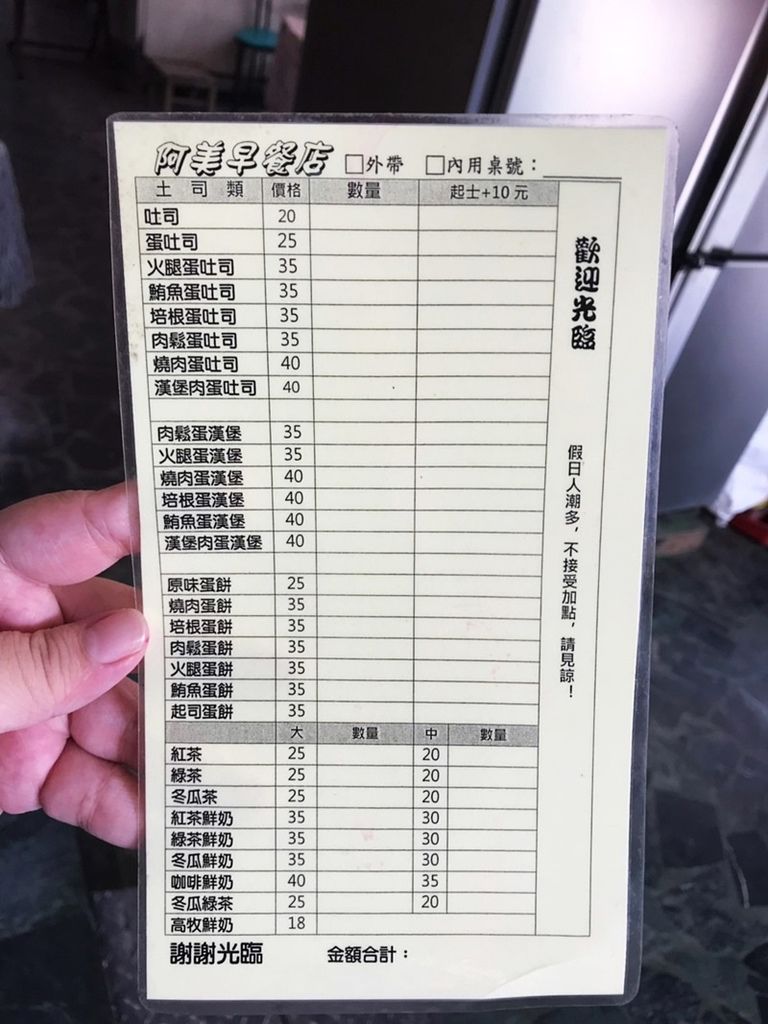 阿美早餐店 □外帶 □內用桌號：
土司類 價格 數量 起士+10元
吐司 20
蛋吐司 25
火腿蛋吐司 35
鮪魚蛋吐司 35
培根蛋吐司 35
肉鬆蛋吐司 35
燒肉蛋吐司 40
漢堡肉蛋吐司 40
肉鬆蛋漢堡 35
火腿蛋漢堡 35
燒肉蛋漢堡 40
培根蛋漢堡 40
鮪魚蛋漢堡 40
漢堡肉蛋漢堡 40
原味蛋餅 25
燒肉蛋餅 35
培根蛋餅 35
肉鬆蛋餅 35
火腿蛋餅 35
鮪魚蛋餅 35
起司蛋餅 35
大 數量 中 數量
紅茶 25 20
綠茶 25 20
冬瓜茶 25 20
紅茶鮮奶 35 30
綠茶鮮奶 35 30
冬瓜鮮奶 35 30
咖啡鮮奶 40 35
冬瓜綠茶 25 20
高牧鮮奶 18
謝謝光臨 金額合計：
歡迎光臨
假日人潮多，不接受加點，請見諒！